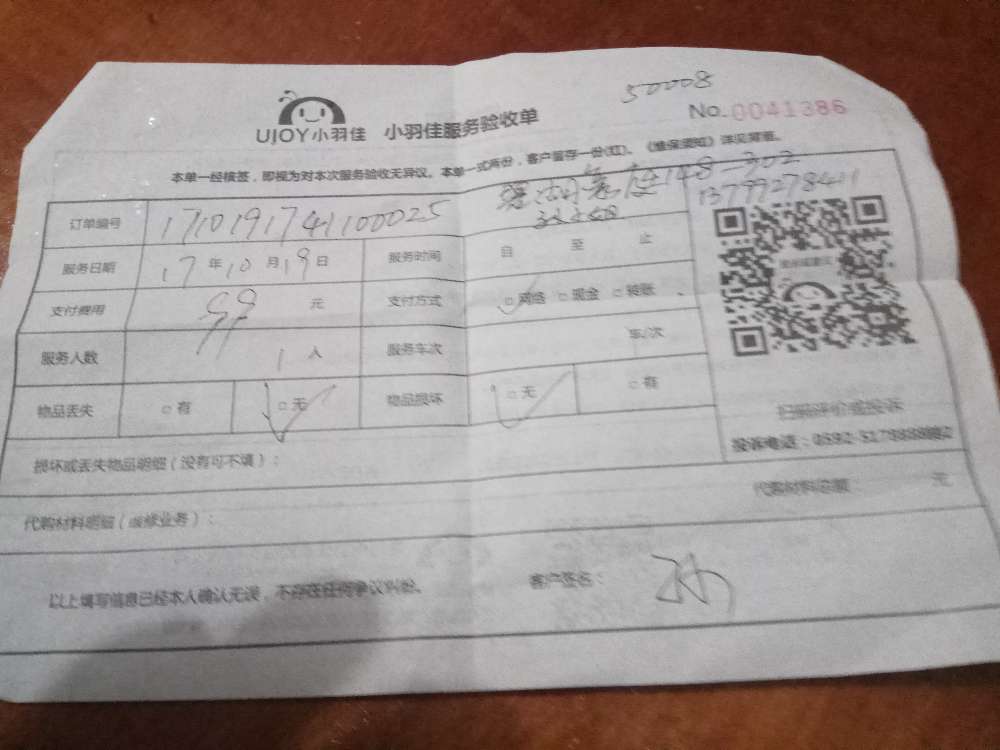 50008
UJOY小羽佳 小羽佳服务验收单 No.0041386
本单一经核签，即视为对本次服务验收无异议。本单一式两份，客户留存一份(红)。《维保须知》详见背面。
148-302
13799278411
订单编号 1710191741100025
服务日期 17年10月19日 服务时间 自 至 止
支付费用 99 元 支付方式 □网络 □现金 □转账
服务人数 1人 服务车次 车/次
物品丢失 □有 □无 物品损坏 □无 □有
扫码评价或投诉
投诉电话：0592-5179888转2
损坏或丢失物品明细（没有可不填）：
代购材料明细（维修业务）： 代购材料总额 元
以上填写信息已经本人确认无误，不存在任何争议纠纷。 客户签名：